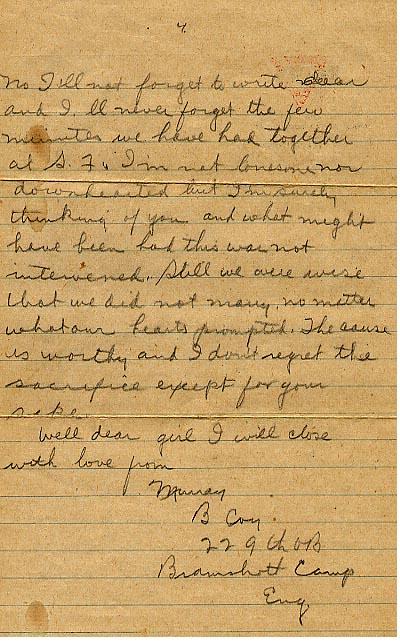 4.
No I'll not forget to write dear
and I. ll never forget the few
minutes we have had together
at S. F. I'm not lonesome nor
downhearted but I'm surely
thinking of you and what might
have been had this war not
intervened. Still we were wise
that we did not marry, no matter
what our hearts prompted. The cause
is worthy and I don't regret the
sacrifice except for your
sake.
Well dear girl I will close
with love from
Murray
B Coy.
229th OB
Bramshott Camp
Eng